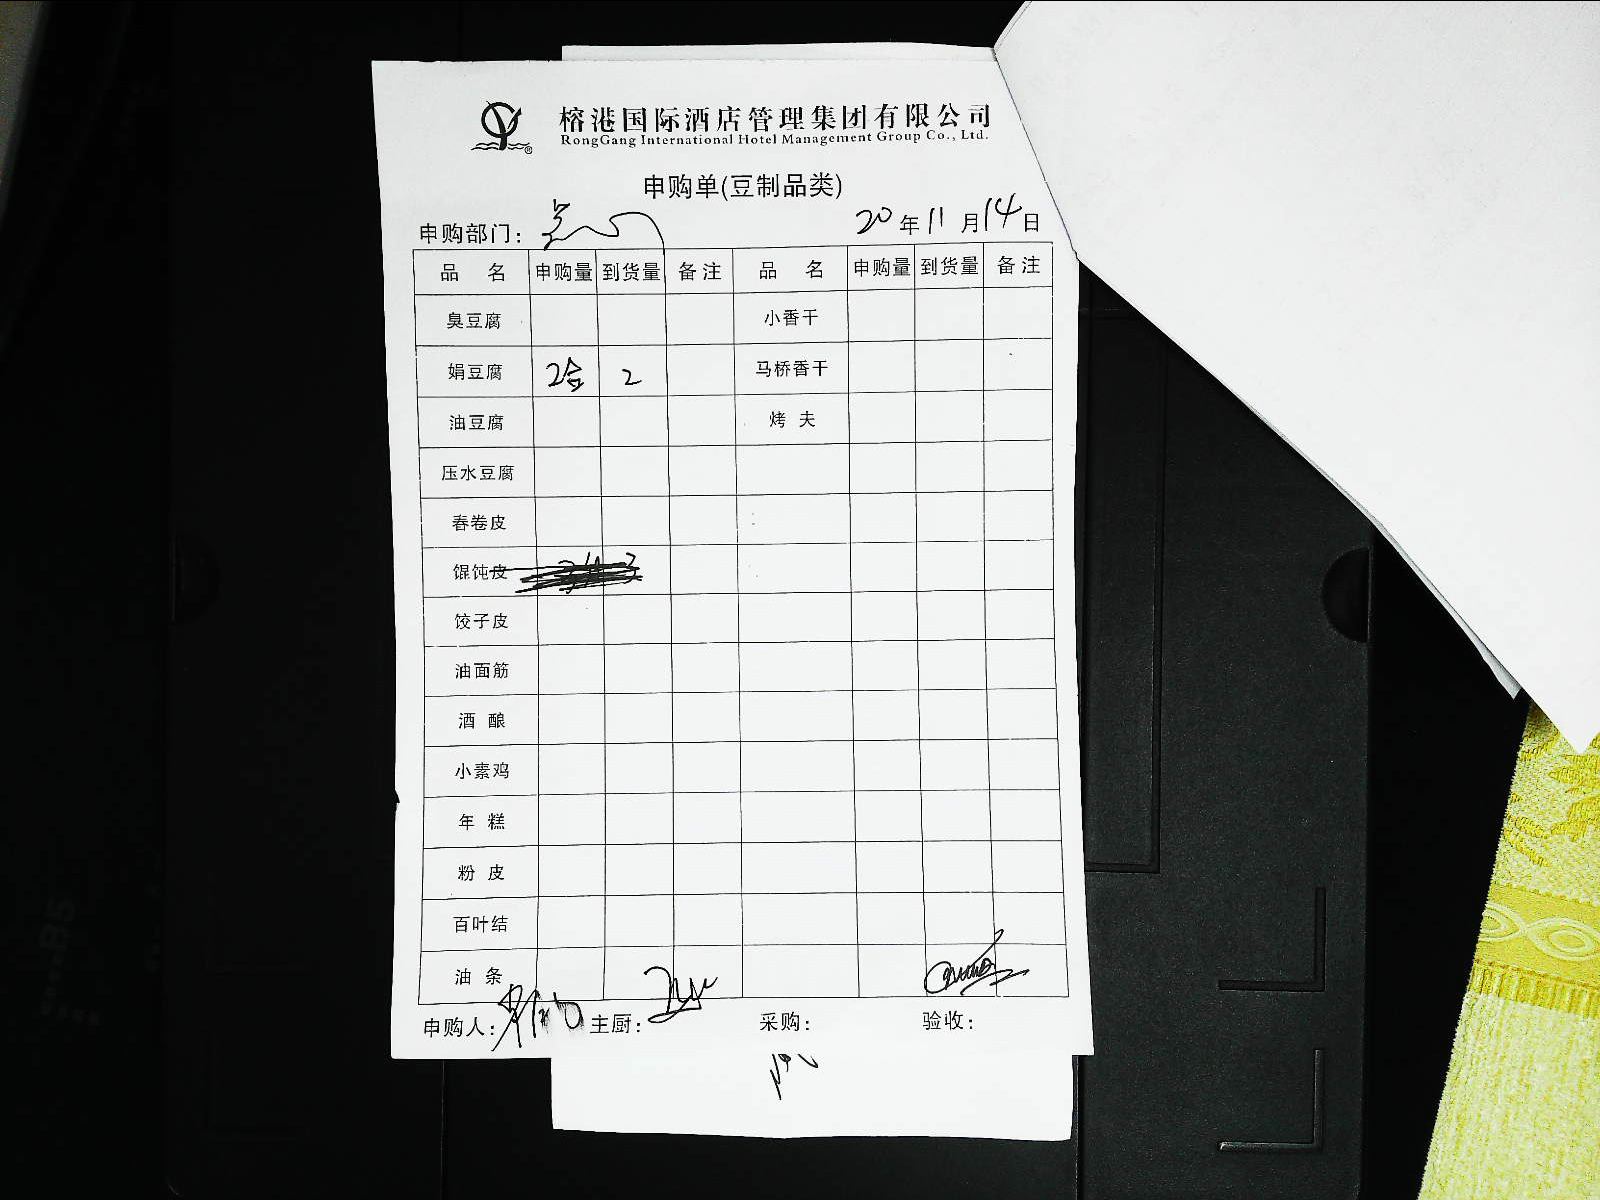 榕港国际酒店管理集团有限公司
RongGang International Hotel Management Group Co., Ltd.
申购单(豆制品类)
申购部门： 20年11月14日
品 名 申购量 到货量 备注 品 名 申购量 到货量 备注
臭豆腐 小香干
娟豆腐 2合 2 马桥香干
油豆腐 烤 夫
压水豆腐
春卷皮
馄饨皮
饺子皮
油面筋
酒 酿
小素鸡
年 糕
粉 皮
百叶结
油 条
申购人： 主厨： 采购： 验收：